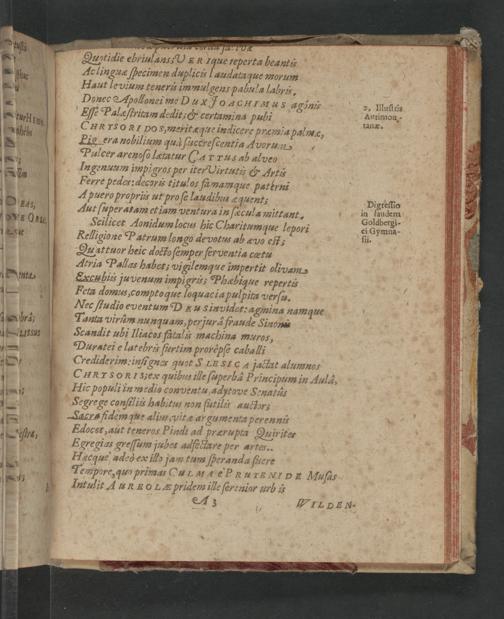 Quotidie ebriulans, VERIque reperta beantis
Ac linguæ specimen duplicis laudataque morum
Haut levium teneris immulgens pabula labris.
Donec Apollonei me DUX JOACHIMUS agônis
Esse Palæstritam dedit; & certamina pubi
CHRYSORIDOS, meritæque indicere præmia palmæ,
Pig era nobilium quâ succrescentia Avorum
Pulcer arenoso lætatur CATTUS ab alveo
Ingenuum impigros per iter Virtutis & Artis
Ferre pedes: decoris titulos famamque paterni
A puero propriis ut prose laudibus æquent;
Aut superatam etiam ventura in sæcula mittant.
Scilicet Aonidum locus hic Charitumque lepori
Relligione Patrum longo devotus ab ævo est;
Quattuor heic docto semper ferventia cœtu
Atria Pallas habet; vigilemque impertit olivam
Excubiis juvenum impigris; Phœbique repertis
Feta domus, comptoque loquacia pulpita versu.
Nec studio eventum DEUS invidet: agmina namque
Tanta virûm nunquam, perjurâ fraude Sinonis
Scandit ubi Iliacos fatalis machina muros,
Duratei e latebris furtim prorêpse caballi
Crediderim: insignes quot SLESICA jactat alumnos
CHRYSORIS; ex quibus ille superbâ Principum in Aulâ,
Hic populi in medio conventu, adytove Senatûs
Segrege consiliis habitus non sutilis auctor;
Sacra fidemque alius, vitæ argumenta perennis
Edocet, aut teneros Pindi ad prærupta Quirites
Egregias gressum jubet adfectare per artes.
Hæcque adeò ex illo jam tum speranda fuere
Tempore, quo primas CULMA è PRUTENIDE Musas
Intulit AUREOLÆ pridem ille serenior urbis
A 3
WILDEN-
2, Illustris
Antimon-
tanæ.
Digressio
in laudem
Goldbergi-
ci Gymna-
sii.